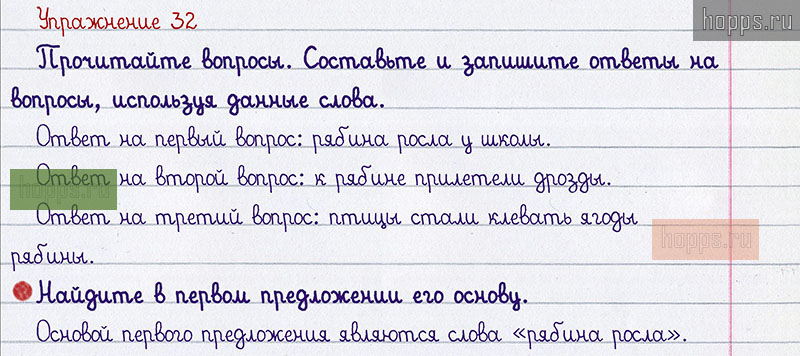 Упражнение 32
hopps.ru
Прочитайте вопросы. Составьте и запишите ответы на
вопросы, используя данные слова.
Ответ на первый вопрос: рябина росла у школы.
Ответ на второй вопрос: к рябине прилетели дрозды.
hopps.ru
Ответ на третий вопрос: птицы стали клевать ягоды
hopps.ru
рябины.
Найдите в первом предложении его основу.
Основой первого предложения являются слова «рябина росла».